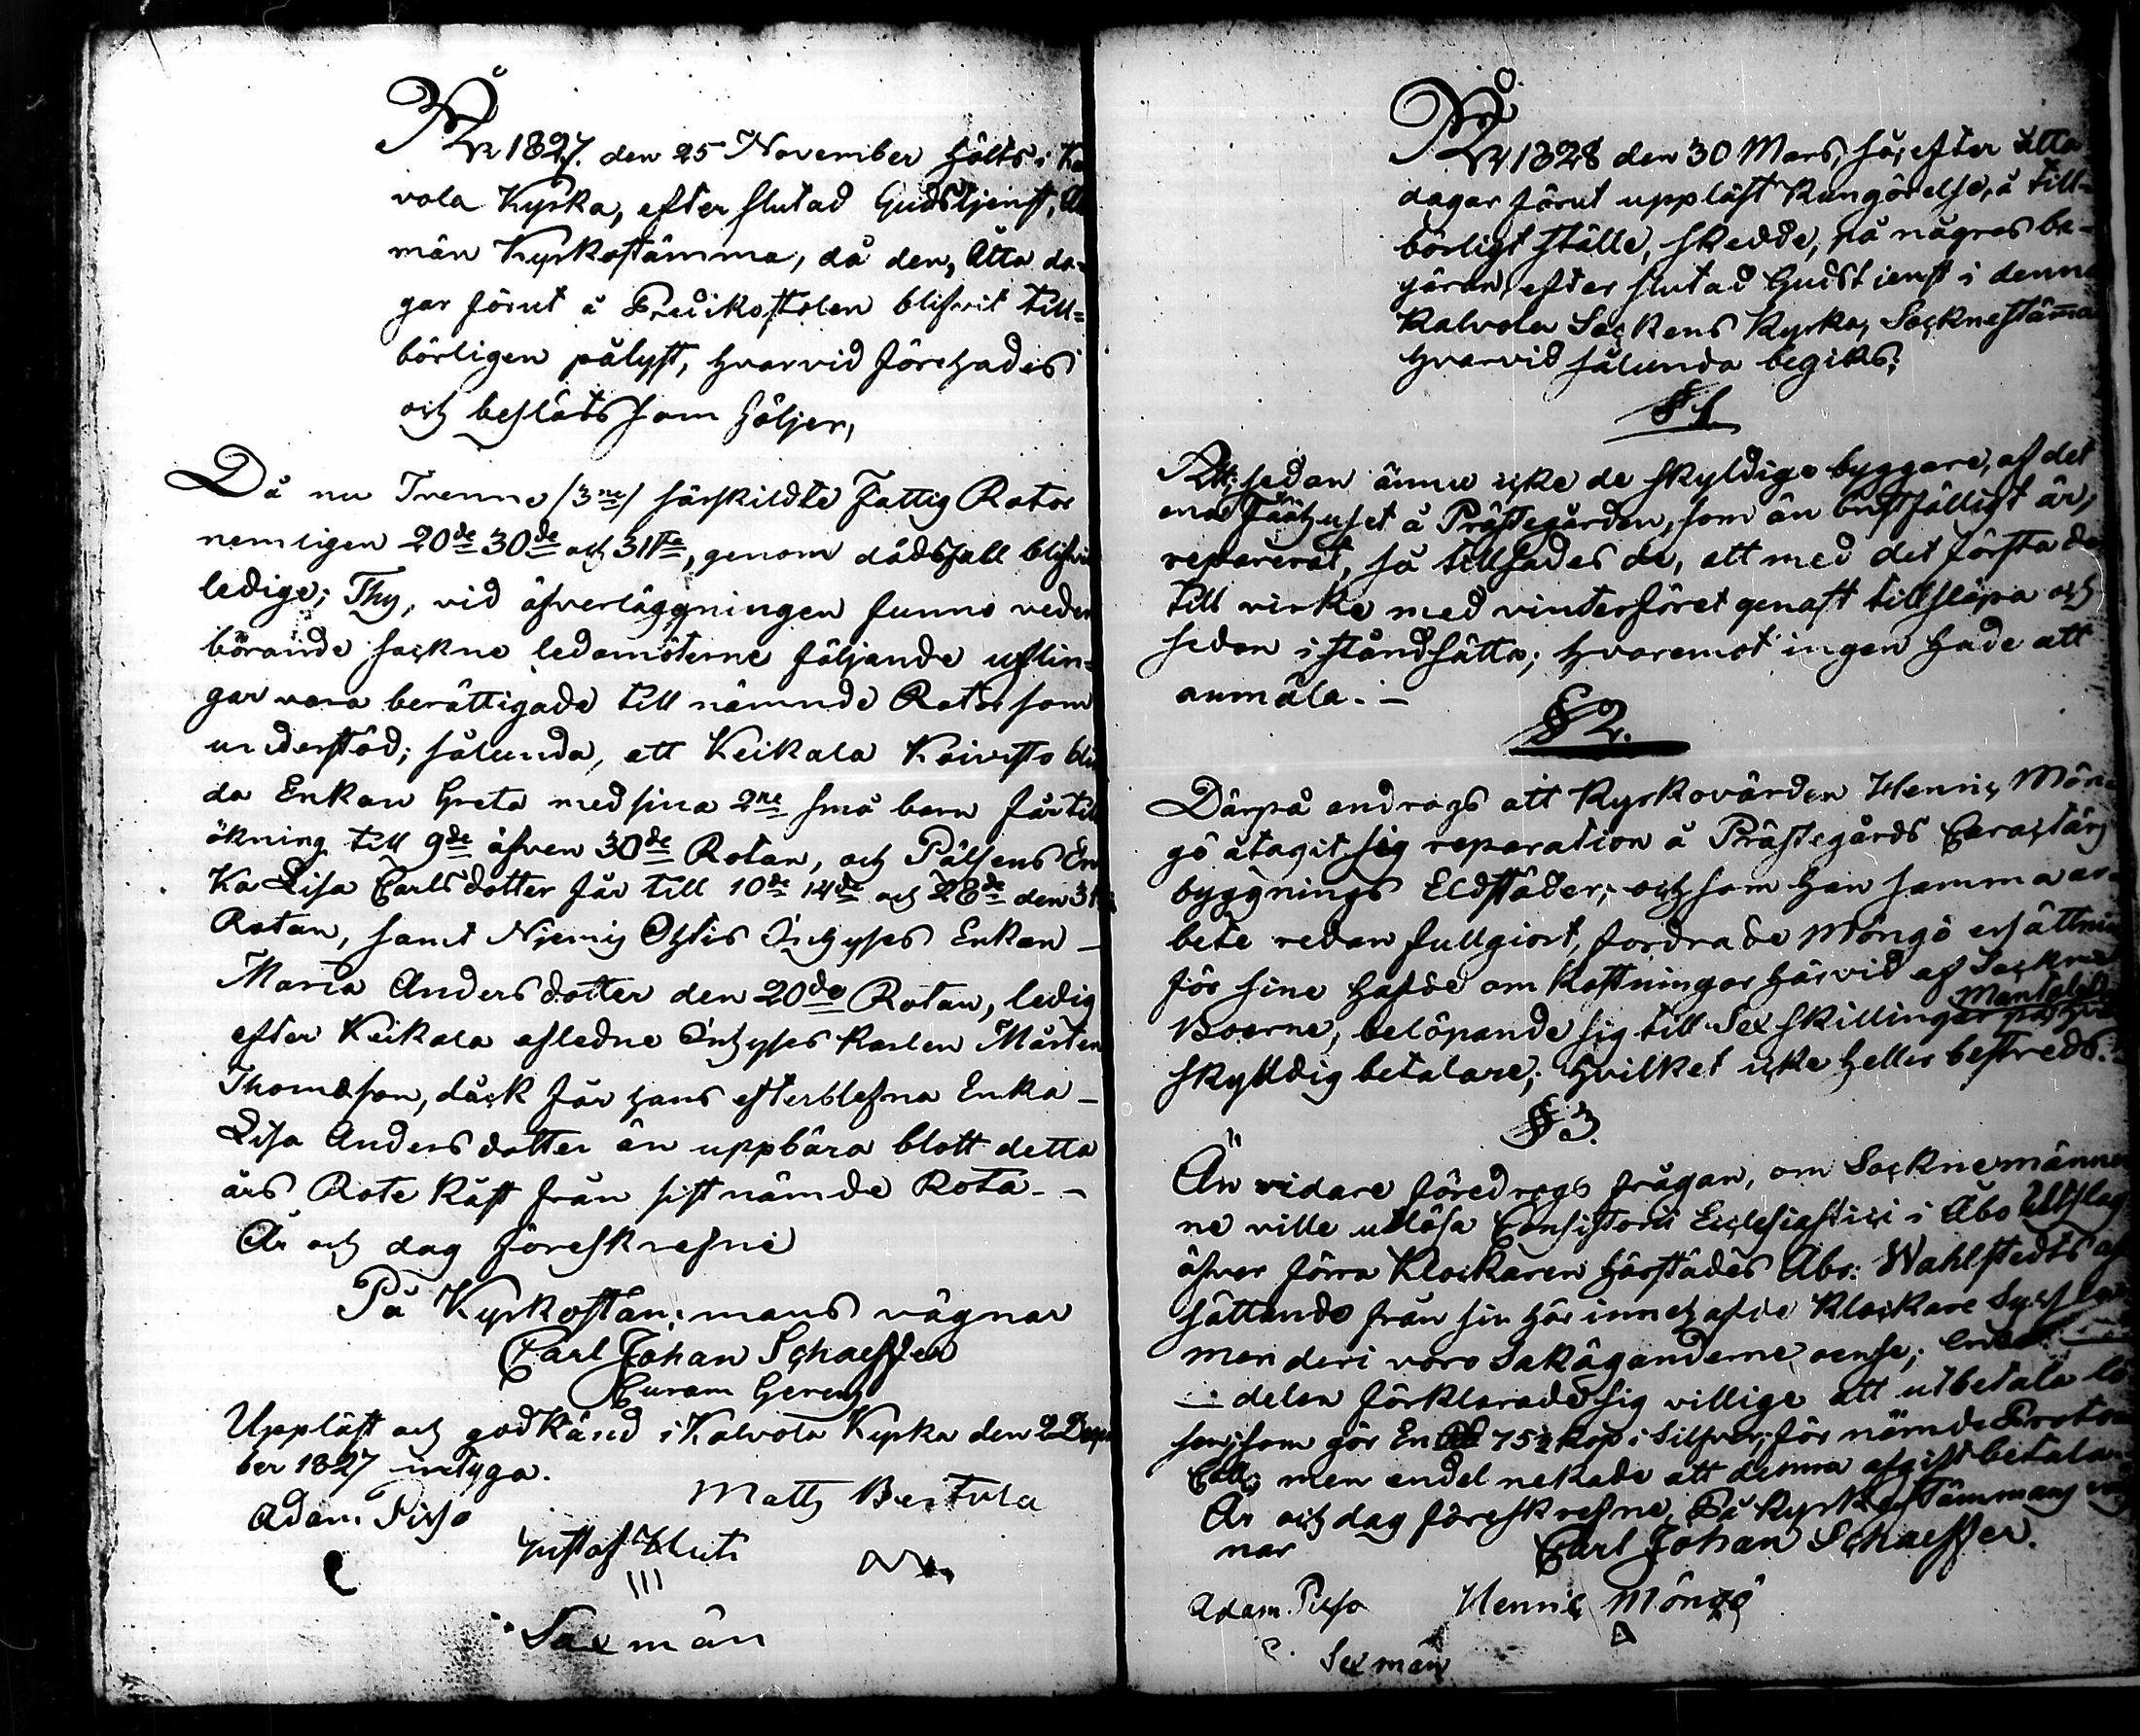 År 1827. den 25 November hölts i Ka
vola Kyrka, efter slutad Gudstjenst, Al
män Kyrkostämma, då den, Åtta da-
gar förut å Predikostolen blifvit till=
börligen pålyst, hvarvid förehades
och beslöts som följer,
Då nu Trenne /3ne/ särskildte Fattig Rotor
nemligen 20de 30de och 31sta, genom dödsfall blifvit
ledige; Thy, vid öfverläggningen funno veder
börande sockne ledamöterne följande usslin=
gar vara berättigade till nämnde Rotor som
understöd; sålunda, att Keikala Koivisto blin
da Enkan Greta med sina 2ne små barn får till
ökning till 9de äfven 30de Rotan, och Pälsens En
ka Lisa Carlsdotter får till 10de 14de och 28de den 31
Rotan, samt Njemis Inhyses Enkan –
Maria Andersdotter den 20de Rotan, ledig
efter Keikala afledne Inhyses karlen Mårten
Thomasson, dåck får hans efterblefna Enka –
Lisa Andersdotter än uppbära blott detta
års Rote kåst från sistnämde Rota. –
År och dag föreskrefne
På Kyrkostämmans vägnar
Carl Johan Schaeffer
Curam Gerens
Uppläst och godkänd i Kalvola Kyrka den 2 Decem
ber 1827 intyga.
Adam Pirjo
Matts Bertula
Gustaf
Sexmän
År 1828 den 30 Mars, så, efter åtta
dagar förut uppläst Kungörelse, å till-
börligt ställe, skedde, på någras be-
gäran, efter slutad Gudstienst i denna
Kalvola Sockens Kyrka, Socknestäma
hvarvid sålunda begicks:
§ 1.
Att; sedan ännu icke de skyldige byggare, af det
ena Fäähuset å Prästegården, som än bristfälligt är,
reparerat, så tillsades de, att med det första der
till virke med vinterföret genast tillsläpa och
sedan iståndsätta; hvaremot ingen hade att
anmäla. –
§ 2.
Därpå androgs att Kyrkovärden Henric Mön
gö åtagit sig reparation å Prästegårds Caractärs
byggnings Eldstäder; och som han samma ar-
bete redan fullgiort, fordrade Möngö ersättning
för sine hafde omkostningar härvid af Sockne
Boerne, belöpande sig till Sex skillingar på hvar
Mantals
skylldig betalare; hvilket icke heller bestreds.
§ 3.
Än vidare föredrogs frågan, om Socknemänner
ne ville utlösa Consistorii Ecclesiastici i Åbo Utslag
öfver förra Klockaren härstädes Abr: Wahlstedts af
sättande från sin här innehafde Klockare Syssla
men deri voro Sakäganderne oense; endel
delen förklarade sig villige att utbetala lö
sen; som gör En 75½ kop i Silfver; för nämde Protocoll
Coll; men endel nekade att denna afgift betala.
År och dag föreskrefne, På Kyrkostämmans väg
nar
Carl Johan Schaeffer.
Adam Pirjo
Henric Möngö
Sexmän